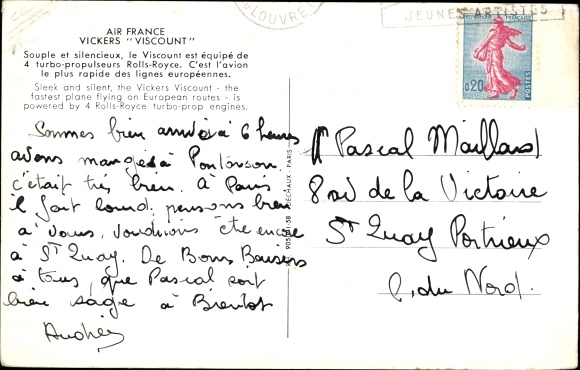 AIR FRANCE
VICKERS "VISCOUNT"
Souple et silencieux, le Viscount est équipé de
4 turbo-propulseurs Rolls-Royce. C'est l'avion
le plus rapide des lignes européennes.
Sleek and silent, the Vickers Viscount - the
fastest plane flying on European routes - is
powered by 4 Rolls-Royce turbo-prop engines.
Sommes bien arrivés à 6 heures
avons mangés à Pontorson
c'était très bien. à Paris
il fait lourd. pensons bien
à vous, voudrions être encore
à St Quay. De Bons Baisers
à tous, que Pascal soit
bien sage à Bientot
LOUVRE
JEUNES ARTISTES
FRANÇAISE
0,20
POSTES
Pascal Maillard
8 de la Victoire
St Quay Portrieux
C. du Nord.
PARIS